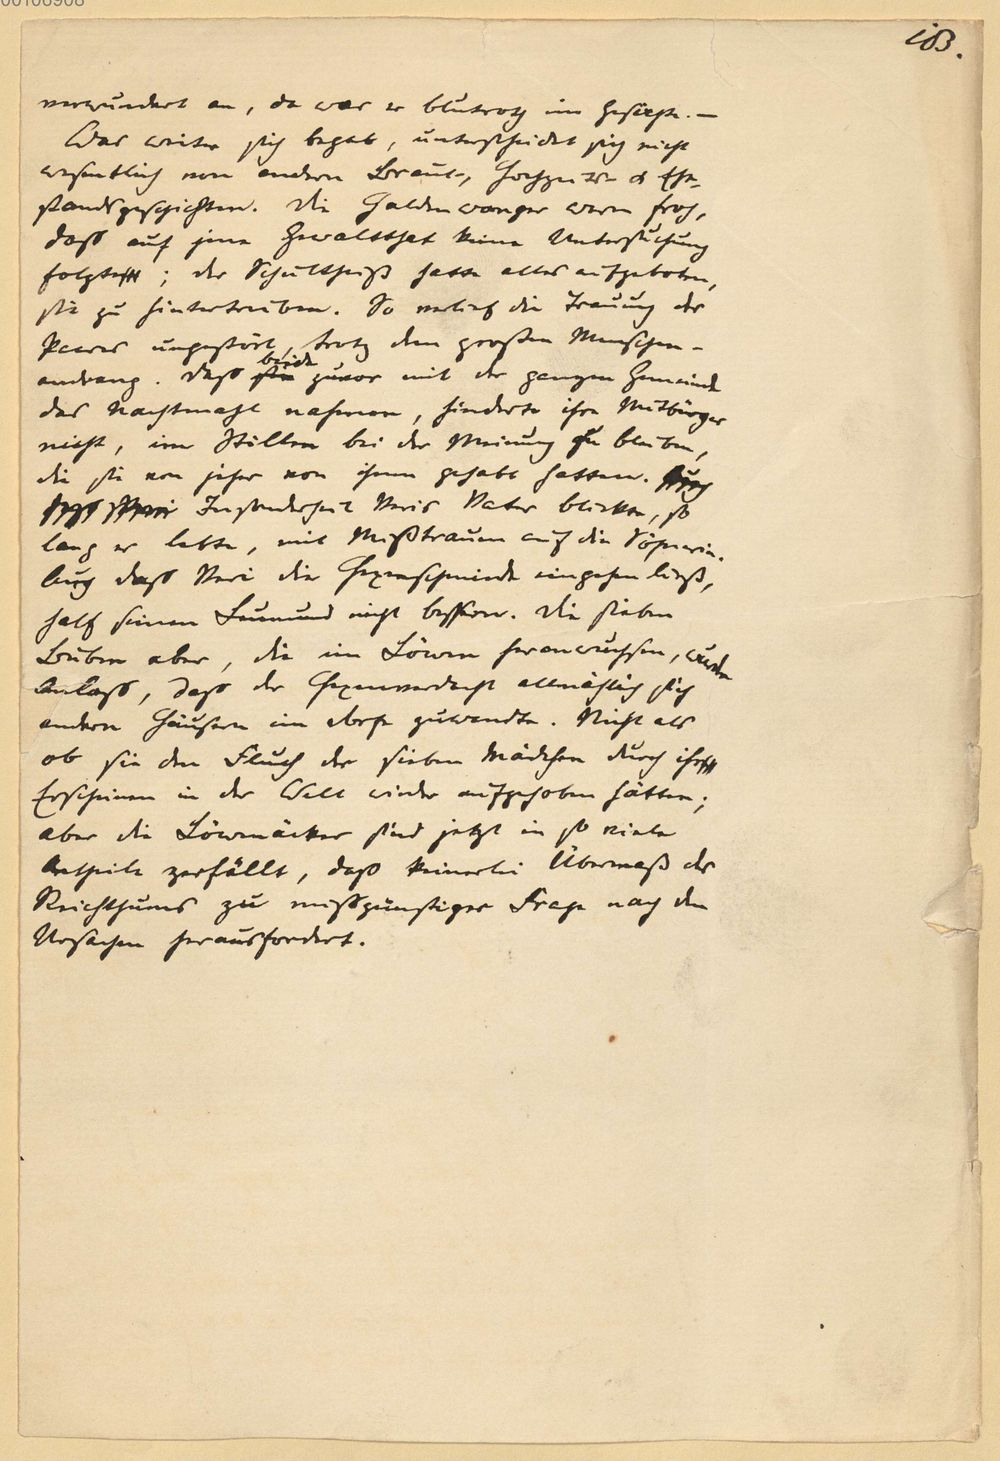 00106908
183.
verwundert an, da war er blutroth im Gesichte. —
Was weiter sich begab, unterscheidet sich nicht
wesentlich von andern Braut-, Hochzeits- & Ehe-
standsgeschichten. Die Haldenwanger waren froh,
daß auf jene Gewaltthat keine Untersuchung
folgte; der Schultheiß hatte alles aufgeboten,
sie zu hintertreiben. So verlief die Trauung des
Paares ungestört, trotz dem großen Menschen-
andrang. Daß beide zuvor mit der ganzen Gemeinde
das Nachtmahl nahmen, hinderte ihre Mitbürger
nicht, im Stillen bei der Meinung zu bleiben,
die sie von jeher von ihnen gehabt hatten.
Insonderheit Veris Vater blickte, so
lang er lebte, mit Mißtrauen auf die Söhnerin.
Auch daß Veri die Hexenschmiede eingehen ließ,
half seinem Leumund nicht bessern. Die sieben
Buben aber, die im Löwen heranwuchsen, wurden
Anlaß, daß der Hexenverdacht allmählich sich
andern Häusern im Dorfe zuwandte. Nicht als
ob sie den Fluch der sieben Mädchen durch ihr
Erscheinen in der Welt wieder aufgehoben hätten;
aber die Löwenäcker sind jetzt in so viele
Antheile zerfällt, daß keinerlei Übermaß des
Reichthums zu mißgünstiger Frage nach den
Ursachen herausfordert.